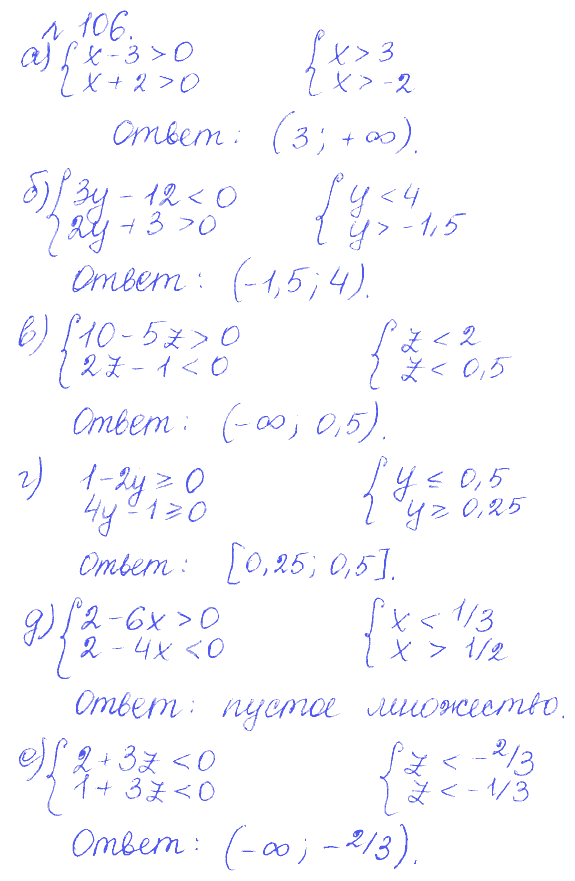 № 106.
а) { x - 3 > 0 { x > 3
x + 2 > 0 x > -2
Ответ: (3; +∞).
б) { 3y - 12 < 0 { y < 4
2y + 3 > 0 y > -1,5
Ответ: (-1,5; 4).
в) { 10 - 5z > 0 { z < 2
2z - 1 < 0 z < 0,5
Ответ: (-∞; 0,5).
г) 1 - 2y ≥ 0 { y ≤ 0,5
4y - 1 ≥ 0 y ≥ 0,25
Ответ: [0,25; 0,5].
д) { 2 - 6x > 0 { x < 1/3
2 - 4x < 0 x > 1/2
Ответ: пустое множество.
е) { 2 + 3z < 0 { z < -2/3
1 + 3z < 0 z < -1/3
Ответ: (-∞; -2/3).